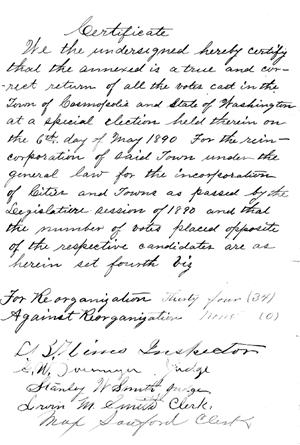 Certificate
We the undersigned hereby certify
that the annexed is a true and cor-
rect return of all the votes cast in the
Town of Cosmopolis and State of Washington
at a special election held therein on
the 6th. day of May 1890 For the rein-
corporation of said Town under the
general law for the incorporation
of Cities and Towns as passed by the
Legislature session of 1890 and that
the number of votes placed opposite
of the respective candidates are as
herein set fourth viz
For Reorganization Thirty four (34)
Against Reorganization None (0)
Inspector
Judge
Stanley W Smith Judge
Irvin M. Smith Clerk.
Max Sanford Clerk